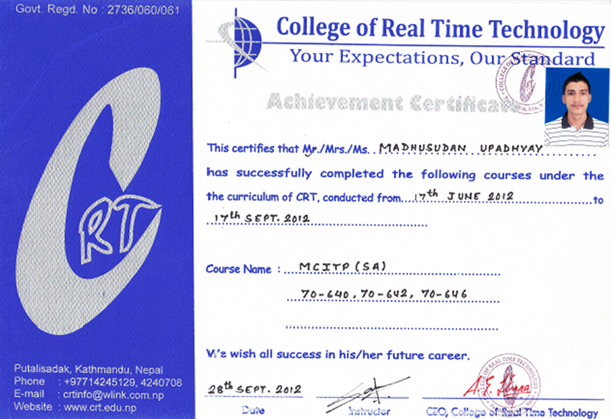 Govt. Regd. No : 2736/060/061
CRT
Putalisadak, Kathmandu, Nepal
Phone : +97714245129, 4240708
E-mail : crtinfo@wlink.com.np
Website : www.crt.edu.np
College of Real Time Technology
Your Expectations, Our Standard
Achievement Certificate
This certifies that Mr./Mrs./Ms. MADHUSUDAN UPADHYAY
has successfully completed the following courses under the
the curriculum of CRT, conducted from 17th JUNE 2012 to
17th SEPT. 2012
Course Name : MCITP (SA)
70-640, 70-642, 70-646
We wish all success in his/her future career.
28th SEPT. 2012
Date Instructor CEO, College of Real Time Technology